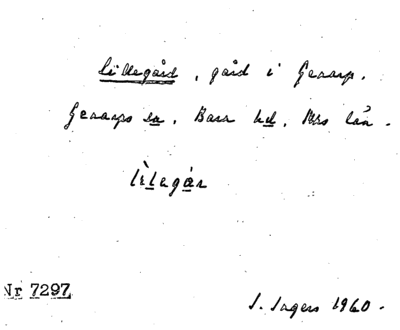 Lillegård, gård i Genarp.
Genarps sn, Bara hd, Mhs län.
lìlegár
Nr 7297
S. Ingers 1960.